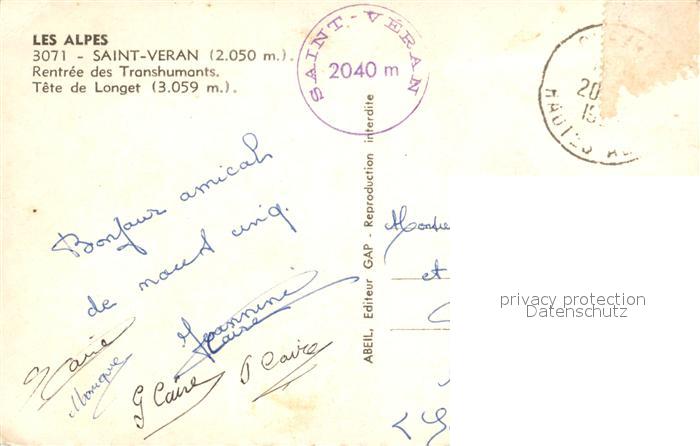 LES ALPES
3071 - SAINT-VERAN (2.050 m.).
Rentrée des Transhumants.
Tête de Longet (3.059 m.).
SAINT-VÉRAN
2040 m
HAUTES
ABEIL, Editeur GAP - Reproduction interdite
Bonjour amical
de nous cinq.
Jeannine
Claire
Monique
G Caire
P Caire
et
privacy protection
Datenschutz